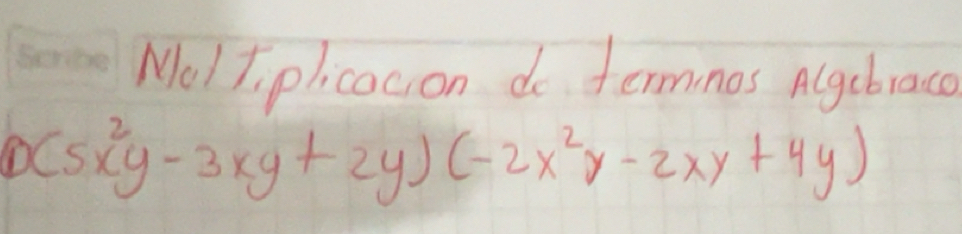 Scribe
Multiplicacion de terminos Algebraico
① (5x²y - 3xy + 2y) (-2x²y - 2xy + 4y)